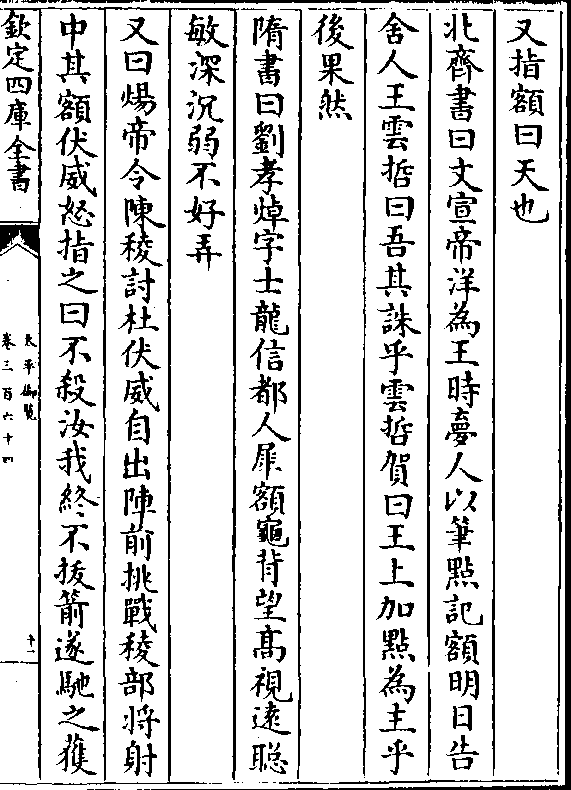 又指額曰天也
北齊書曰文宣帝洋為王時夢人以筆㸃記額明日告
舍人王雲哲曰吾其誅乎雲哲賀曰王上加㸃為主乎
後果然
隋書曰劉孝焯字士龍信都人犀額龜背望髙視逺聡
敏深沉弱不好弄
又曰煬帝令陳稜討杜伏威自出陣前挑戰稜部将射
中其額伏威怒指之曰不殺汝我終不拔箭遂馳之獲
欽定四庫全書
太平御覧
卷三百六十四
十二